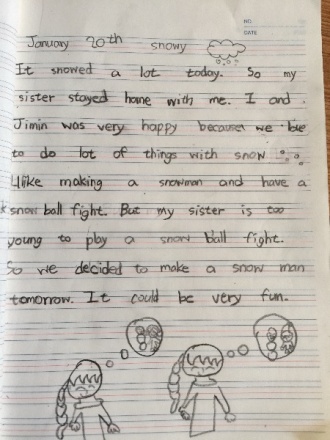 NO.
DATE
January 20th snowy
It snowed a lot today. So my
sister stayed home with me. I and
Jimin was very happy because we
to do lot of things with snow
like making a snowman and have a
snow ball fight. But my sister is too
young to play a snow ball fight.
So we decided to make a snow man
tomorrow. It could be very fun.